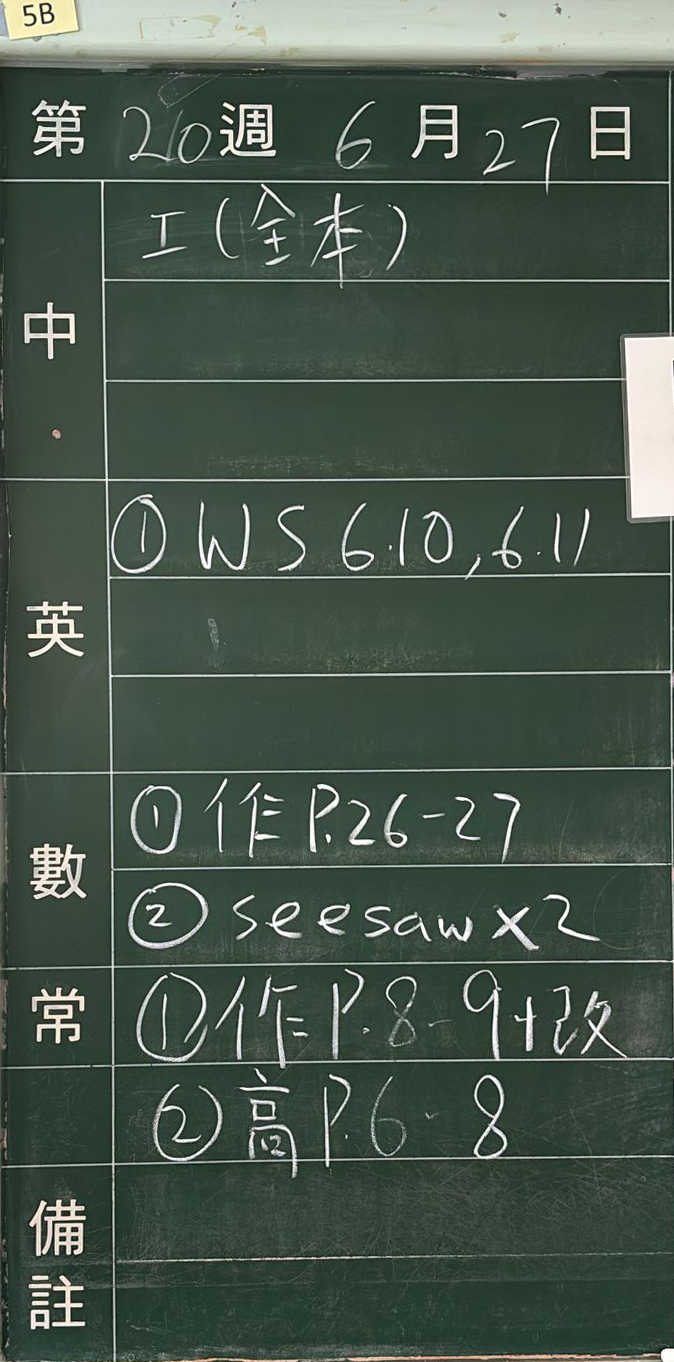 5B
第 20 週 6 月 27 日
中 工(全本)
英 ① WS 6.10, 6.11
數 ① 作 P.26-27
② seesaw x2
常 ① 作 P.8-9+改
② 高 P.6-8
備註